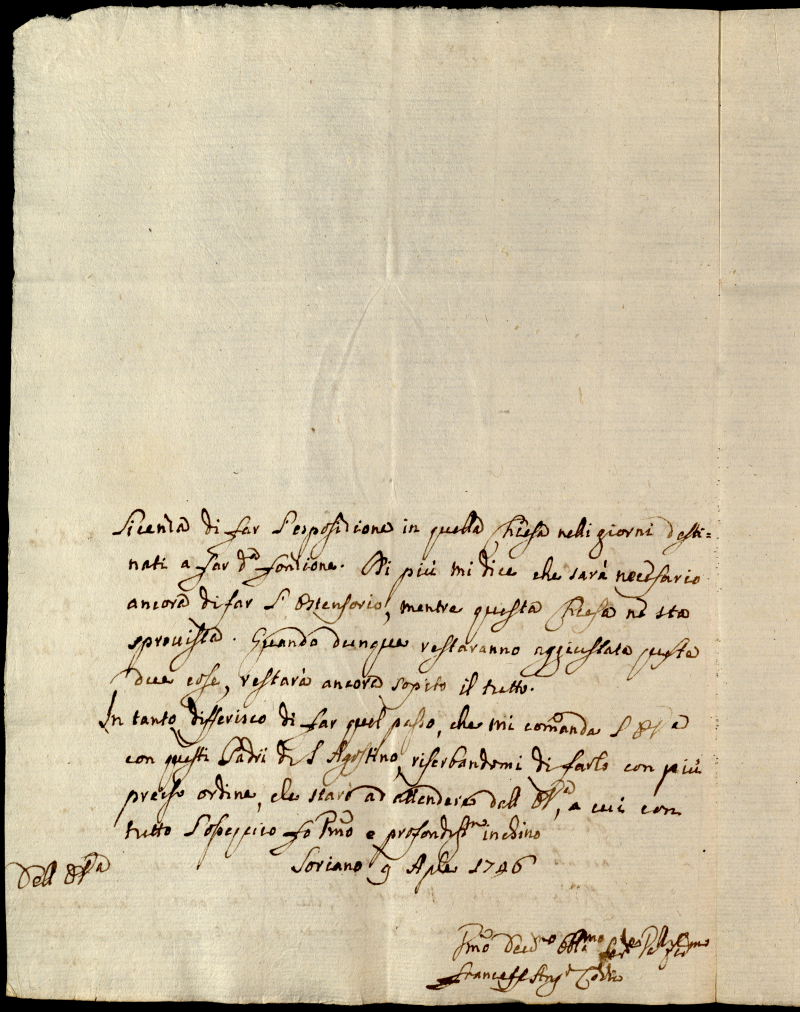 licenza di far l'esposizione in quella Chiesa nelli giorni desti=
nati a far d.ᵃ fonzione. Di più mi dice che sarà necessario
ancora di far l'Ostensorio, mentre questa Chiesa ne sta
sprovista. Quando dunque restaranno aggiustate queste
due cose, restarà ancora sopito il tutto.
In tanto differisco di far quel passo, che mi comanda
con questi Padri di S. Agostino, riserbandomi di farlo con più
preciso ordine, che starò ad attendere dall' , a cui con
tutto l'ossequio fo e profondiss.ᵐᵒ inchino
Soriano 9 Aple 1746
Dell'
Francesc Ang.